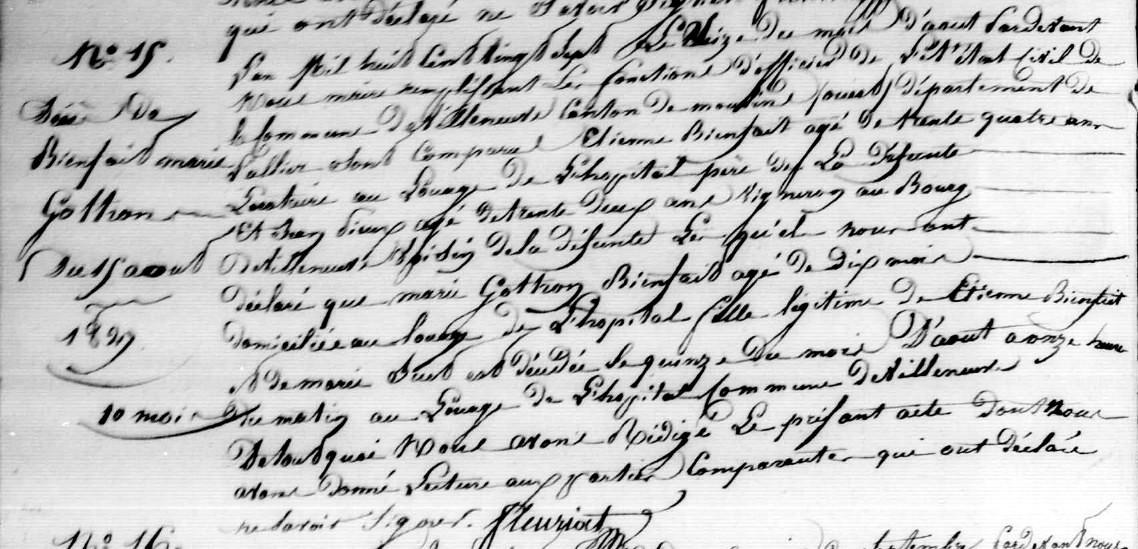 qui ont déclaré ne Savoir Signer
N.o 15.
Décé De
Bienfait marie
Gothon
Du 15 aout
1827
10 mois
L'an Mil huit Cent Vingt Sept Le Seize du mois D'aout Pardevant
Nous maire remplissant Les fonctions D'officier De L'Etat Civil de
la Commune De Villeneuve Canton De moulins (ouest) département De
L'allier sont Comparus Etienne Bienfait agé De trente quatre ans
Locataire au Louage De L'hopital père De La Défunte
Et Jean Vieux agé De trente Deux ans Vigneron au Bourg
De Villeneuve Voisin de la défunte Les quels nous ont
déclaré que marie Gothon Bienfait agé De Dix mois
domiciliée au Louage De L'hopital fille légitime De Etienne Bienfait
et De marie est décédée Le quinze Du mois D'aout a onze heure
Du matin au Louage De L'hopital Commune De Villeneuve
De tout quoi Nous avons Rédigé Le présant acte Dont Nous
avons Donné Lecture aux parties Comparantes qui ont déclaré
ne Savoir Signer. fleuriat
N.o 16.
septembre Pardevant nous